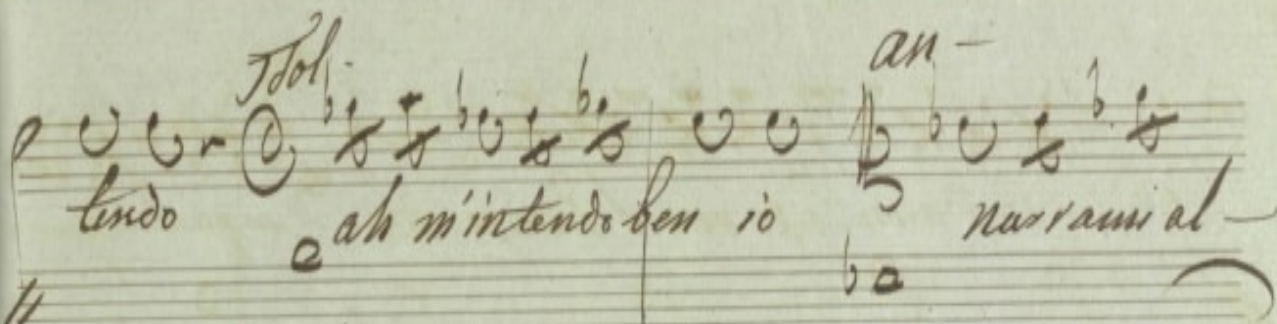 Idol. an-
tendo ah m'intendo ben io narrami al-